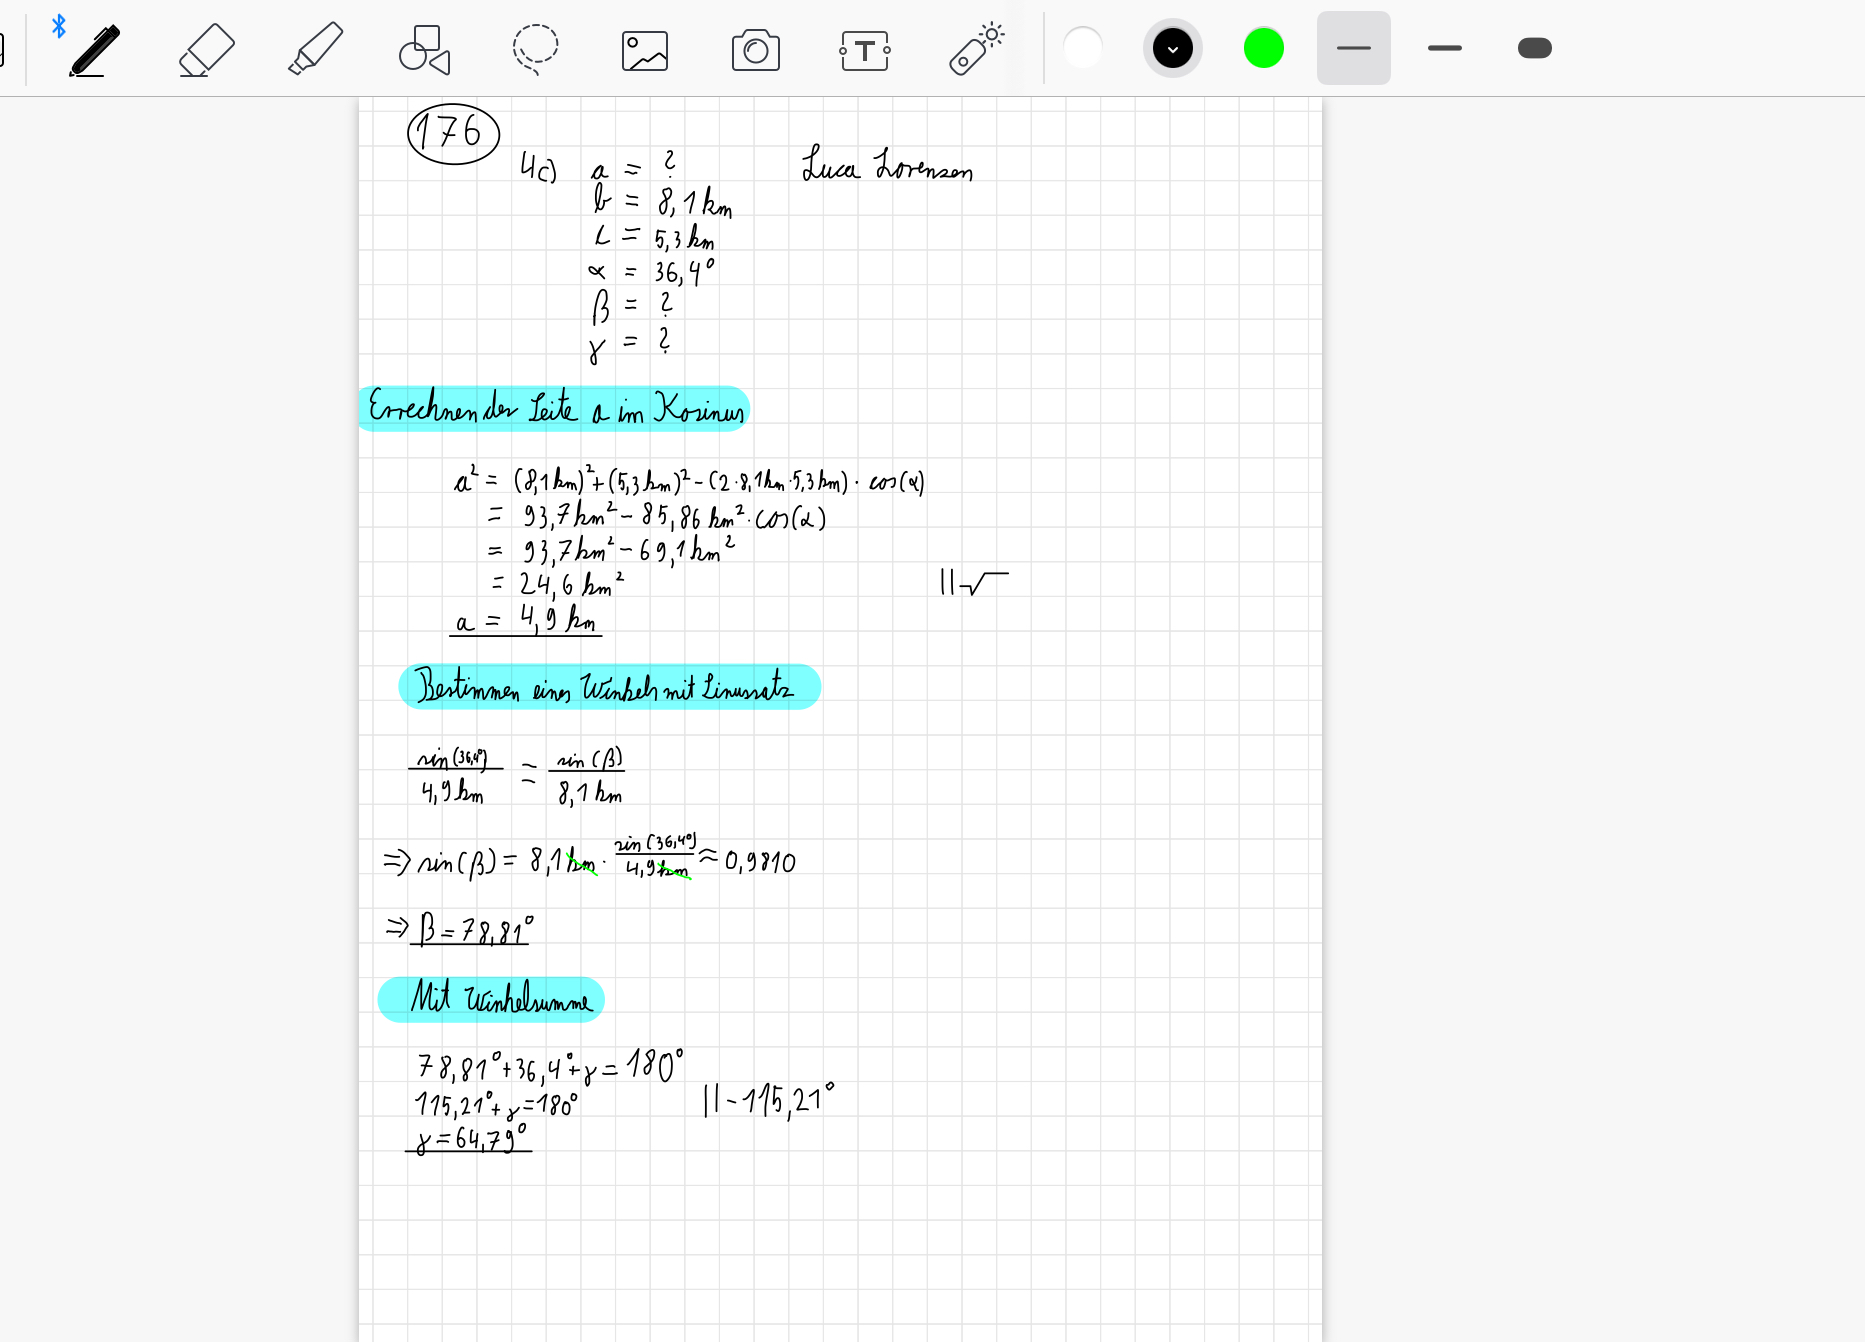 176
4c) a = ? Luca Lorensen
b = 8,1 km
c = 5,3 km
α = 36,4°
β = ?
γ = ?
Errechnen der Seite a im Kosinus
a² = (8,1 km)² + (5,3 km)² - (2 · 8,1 km · 5,3 km) · cos(α)
= 93,7 km² - 85,86 km² · cos(α)
= 93,7 km² - 69,1 km²
= 24,6 km² ||√
a = 4,9 km
Bestimmen eines Winkels mit Sinussatz
sin(36,4°)/4,9 km = sin(β)/8,1 km
⇒ sin(β) = 8,1 km · sin(36,4°)/4,9 km ≈ 0,9810
⇒ β = 78,81°
Mit Winkelsumme
78,81° + 36,4° + γ = 180°
115,21° + γ = 180° || - 115,21°
γ = 64,79°